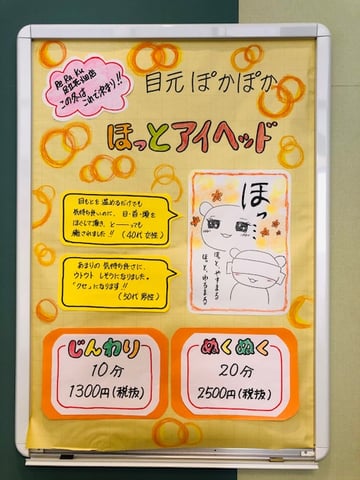 Re.Ra.Ku
この冬は
これで決まり!!
目元ぽかぽか
ほっとアイヘッド
目もとを温めるだけでも
気持ち良いのに、目・首・頭を
ほぐして頂き、と——っても
癒されました!! (40代女性)
あまりの気持ち良さに、
ウトウトしそうになりました。
「クセ」になります!!
(50代男性)
ほっ…
ほっと、やすまる
ほっと、あたたまる
じんわり
10分
1300円(税抜)
ぬくぬく
20分
2500円(税抜)